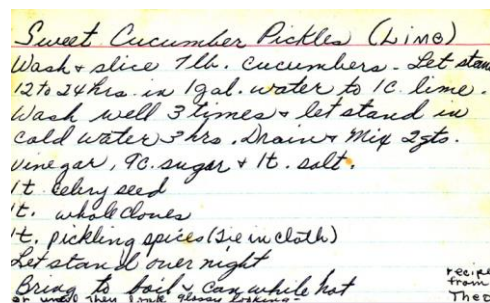 Sweet Cucumber Pickles (Lime)
Wash & slice 7 lb. cucumbers. Let stand
12 to 24 hrs. in 1 gal. water to 1 C. lime.
Wash well 3 times & let stand in
cold water 3 hrs. Drain & Mix 2 qts.
vinegar, 9 C. sugar & 1 t. salt.
1 t. celery seed
1 t. whole cloves
1 t. pickling spices (tie in cloth)
Let stand over night
Bring to boil & can while hot
or until they look glassy looking-
recipe
from
Theo